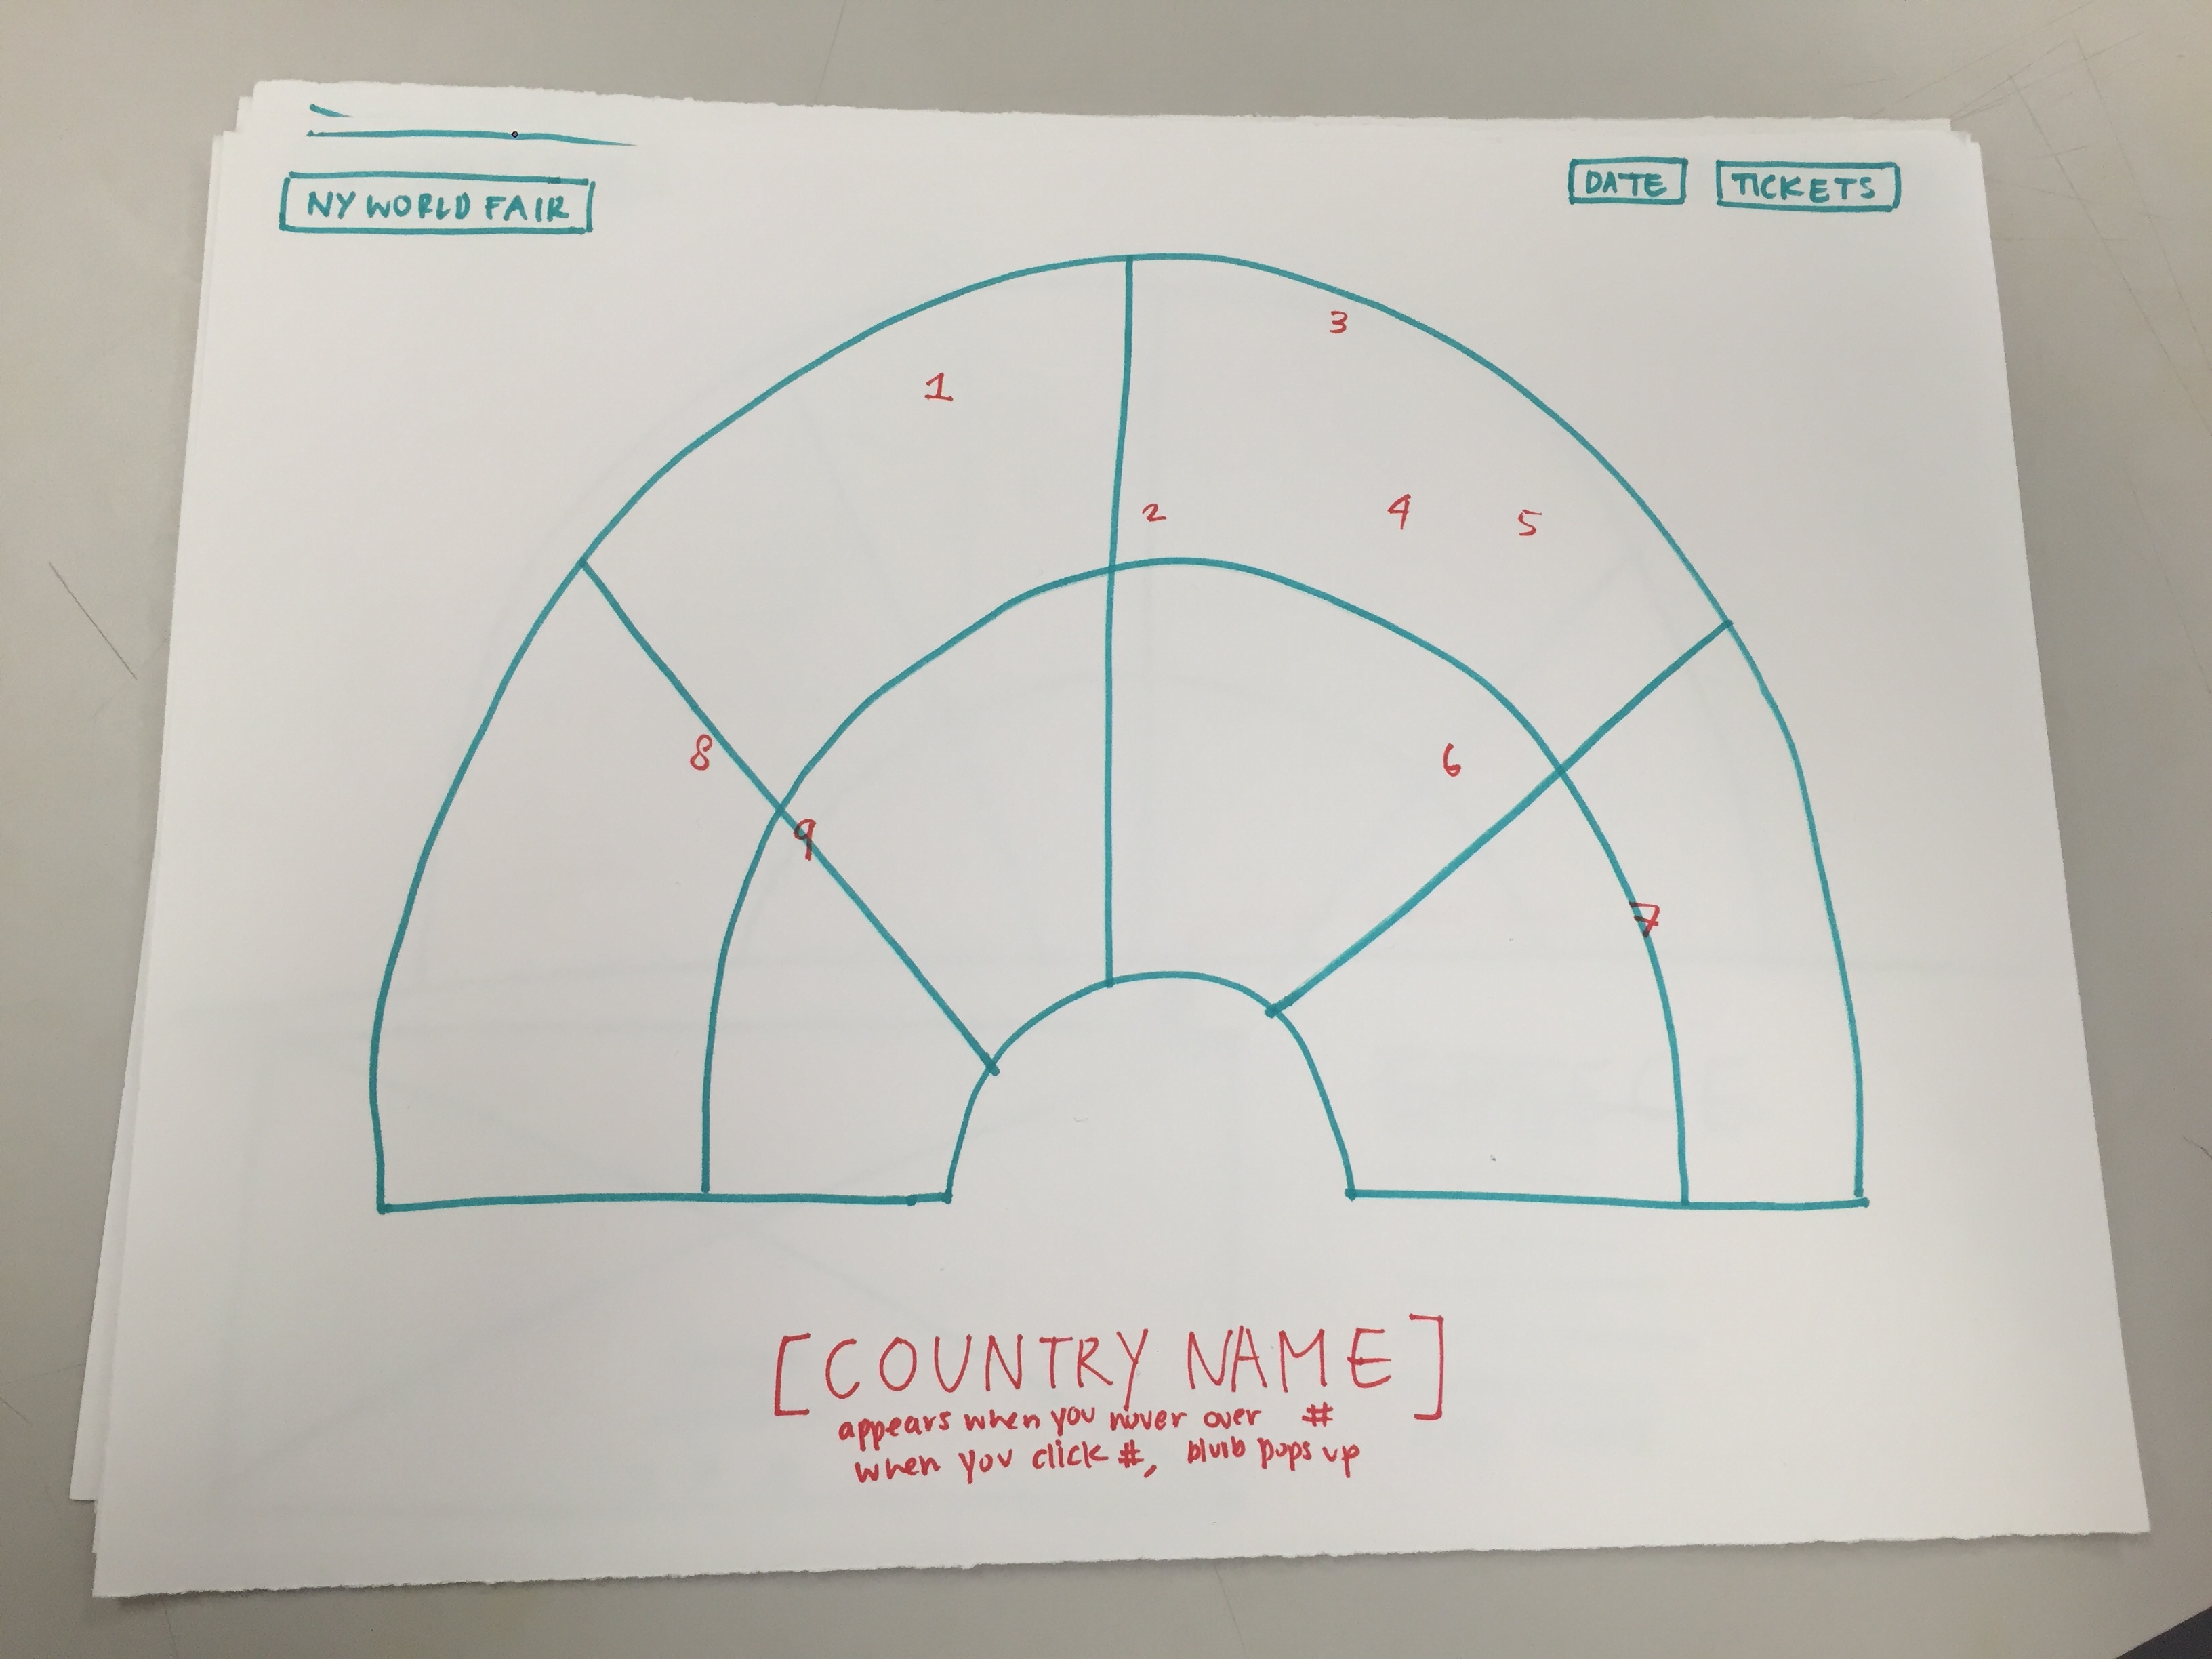 NY WORLD FAIR
DATE
TICKETS
1
2
3
4
5
6
7
8
9
[COUNTRY NAME]
appears when you hover over #
when you click #, blurb pops up